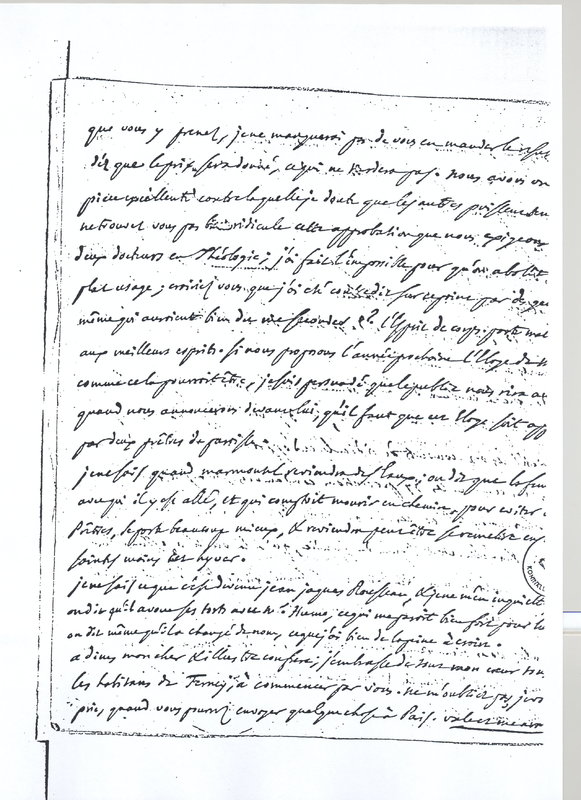 que vous y prenez, je ne manquerai pas de vous en mander le
dès que le prix sera donné, ce qui ne tardera pas. nous avons un
pièce excellente contre laquelle je doute que les autres puissent
ne trouvez vous pas bien ridicule cette approbation que nous exigeons
deux docteurs en Théologie; j'ai fait l'impossible pour qu'on abolit
plat usage; croiriez vous que j'ai été contredit sur ce point par des gens
même qui auroient bien du me seconder l'Esprit de corps porte mal
aux meilleurs esprits. si nous proposons l'année prochaine l'Eloge de
comme cela pourroit être, je suis persuadé que le public nous rira au
quand nous annoncerons devant lui, qu'il faut que cet Eloge soit app
par deux prêtres de paroisse.
je ne sais quand marmontel reviendra des Eaux; on dit que la
avec qui il y est allé, et qui comptoit mourir en chemin, pour eviter
Prêtres, se porte beaucoup mieux, & reviendra peut être se remettre en
saintes mains cet hyver.
je ne sais ce que c'est devenu jean jaques Rousseau, & je ne m'en inquiette
on dit qu'il avoue ses torts avec Mr. Hume, ce qui me paroit bien fort pour lui
on dit même qu'il a changé de nom, ce que j'ai bien de la peine à croire.
adieu mon cher & illustre confrere; j'embrasse de tout mon cœur tous
les habitans de Ferney, à commencer par vous. ne m'oubliez pas, je vo
prie, quand vous pourrez envoyer quelque chose à Paris. vale et me am